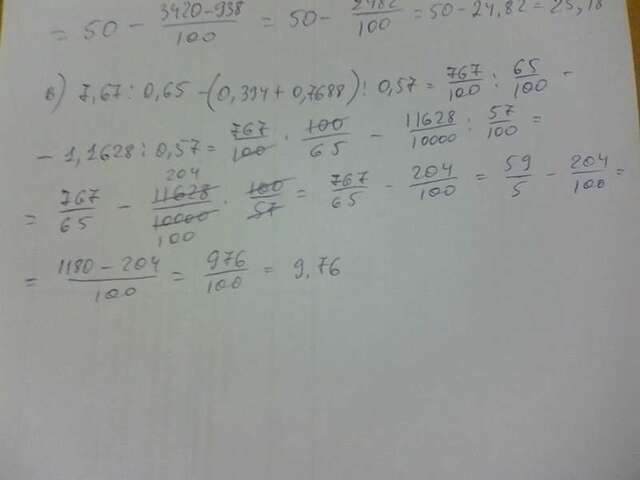 = 50 - 3420-938/100 = 50 - 2482/100 = 50 - 24,82 = 25,18
в) 7,67 : 0,65 - (0,394 + 0,7688) : 0,57 = 767/100 : 65/100 -
- 1,1628 : 0,57 = 767/100 · 100/65 - 11628/10000 : 57/100 =
= 767/65 - 204 11628/10000 100 · 100/57 = 767/65 - 204/100 = 59/5 - 204/100 =
= 1180 - 204/100 = 976/100 = 9,76